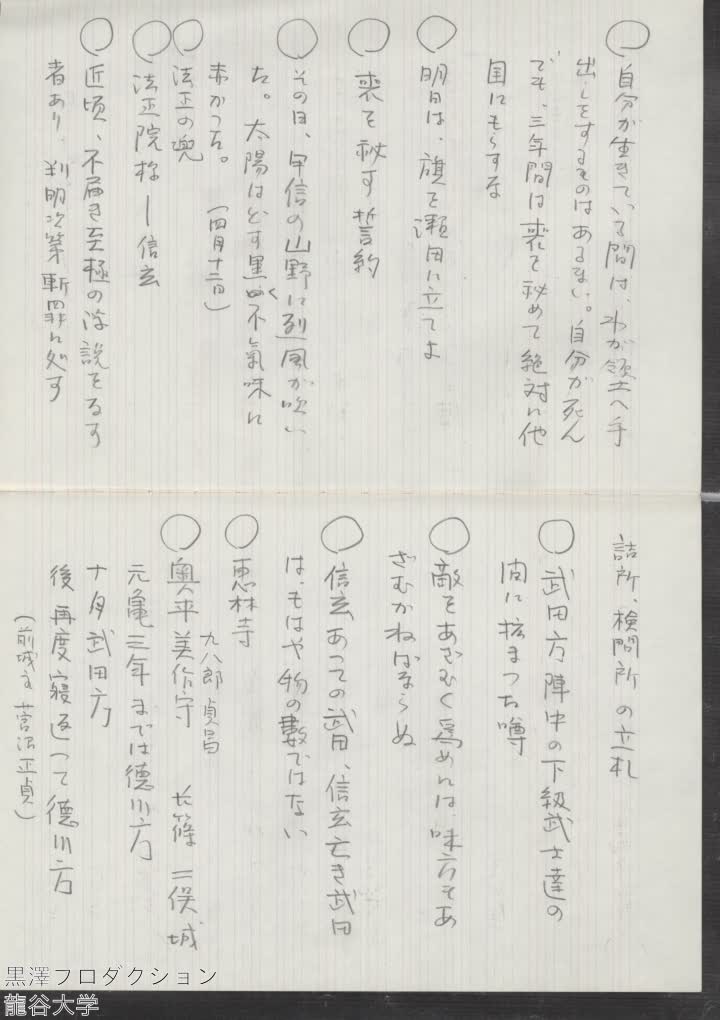 ○自分が生きている間は、わが領土へ手
出しをするものはあるまい。自分が死ん
でも、三年間は喪を秘めて絶対に他
国にもらすな
○明日は、旗を瀬田に立てよ
○喪を秘す誓約
○その日、甲信の山野に烈風が吹い
た。太陽はどす黒く不気味に
赤かった。(四月十二日)
○法正の兜
○法正院様―信玄
○近頃、不届き至極の浮説をなす
者あり、判明次第斬罪に処す
詰所、検問所の立札
○武田方陣中の下級武士達の
間に拡まった噂
○敵をあざむく為めには、味方をあ
ざむかねばならぬ
○信玄あっての武田、信玄亡き武田
は、もはや物の数ではない
○恵林寺
○奥平美作守 長篠 二俣城
九八郎貞昌
元亀三年までは徳川方
十月武田方
後再度寝返って徳川方
(前城主 菅沼正貞)
黒澤プロダクション
龍谷大学